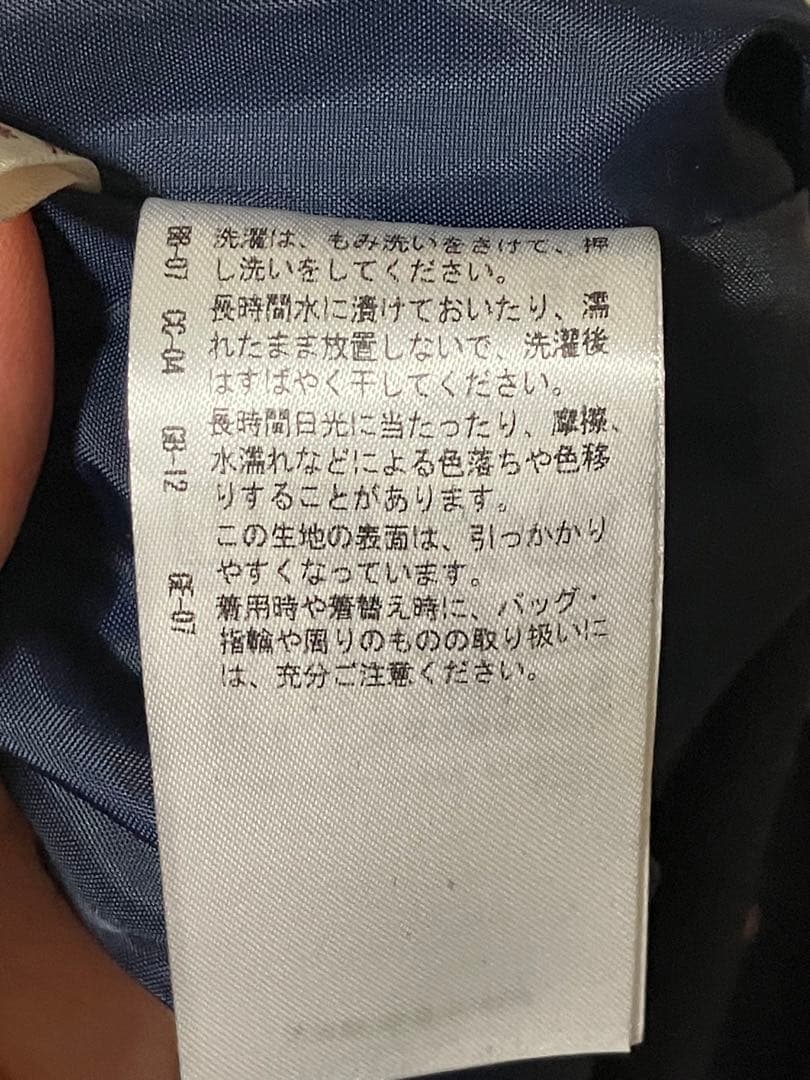 洗濯は、もみ洗いをさけて、押
し洗いをしてください。
長時間水に漬けておいたり、濡
れたまま放置しないで、洗濯後
はすばやく干してください。
長時間日光に当たったり、摩擦、
水濡れなどによる色落ちや色移
りすることがあります。
この生地の表面は、引っかかり
やすくなっています。
着用時や着替え時に、バッグ・
指輪や周りのものの取り扱いに
は、充分ご注意ください。